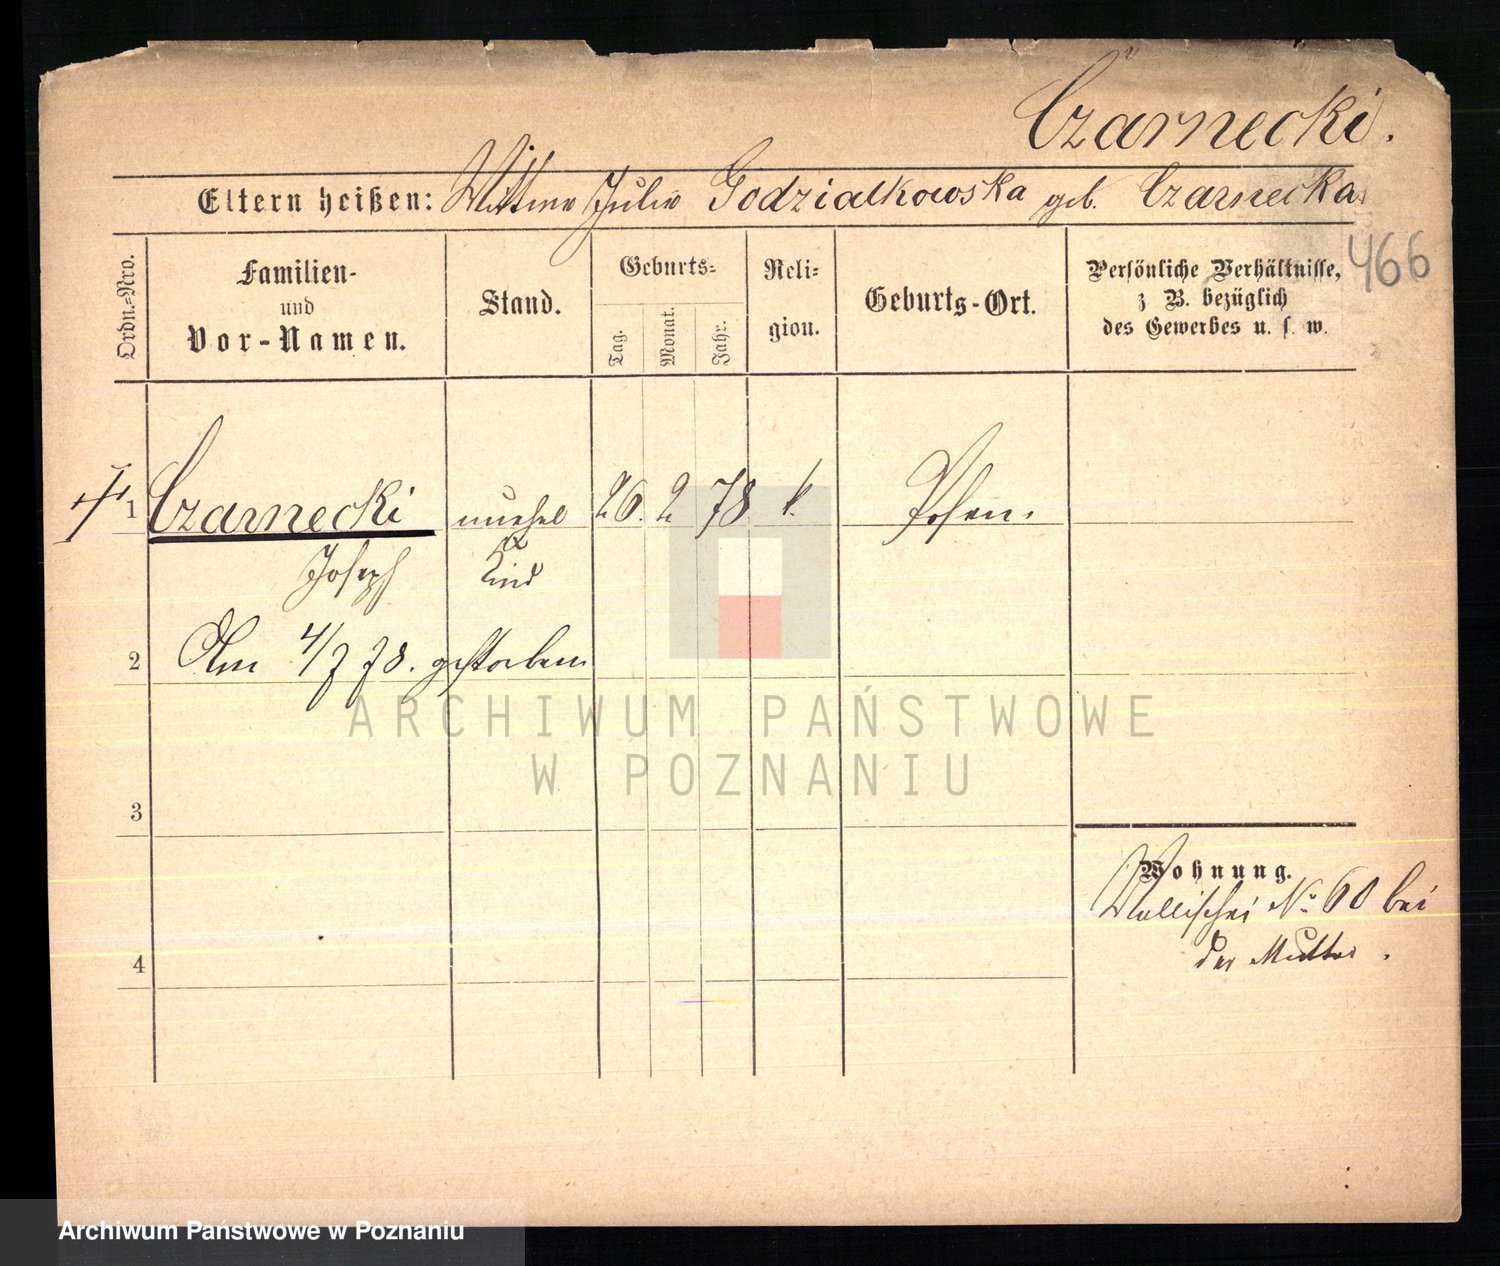 Czarnecki.
Eltern heißen: Wittwe Julie Godzialkowska geb. Czarnecka
466
Ordn.=Nro.
Familien-
und
Vor-Namen.
Stand.
Geburts=
Tag.
Monat.
Jahr.
Reli=
gion.
Geburts-Ort.
Persönliche Verhältnisse,
z. B. bezüglich
des Gewerbes u. s. w.
1 Czarnecki unehel 26. 2 78 k. Posen.
Joseph Kind
2 Am 4/7 78. gestorben
3
4
Wohnung.
Wallischei No 60 bei
der Mutter.
ARCHIWUM PAŃSTWOWE
W POZNANIU
Archiwum Państwowe w Poznaniu